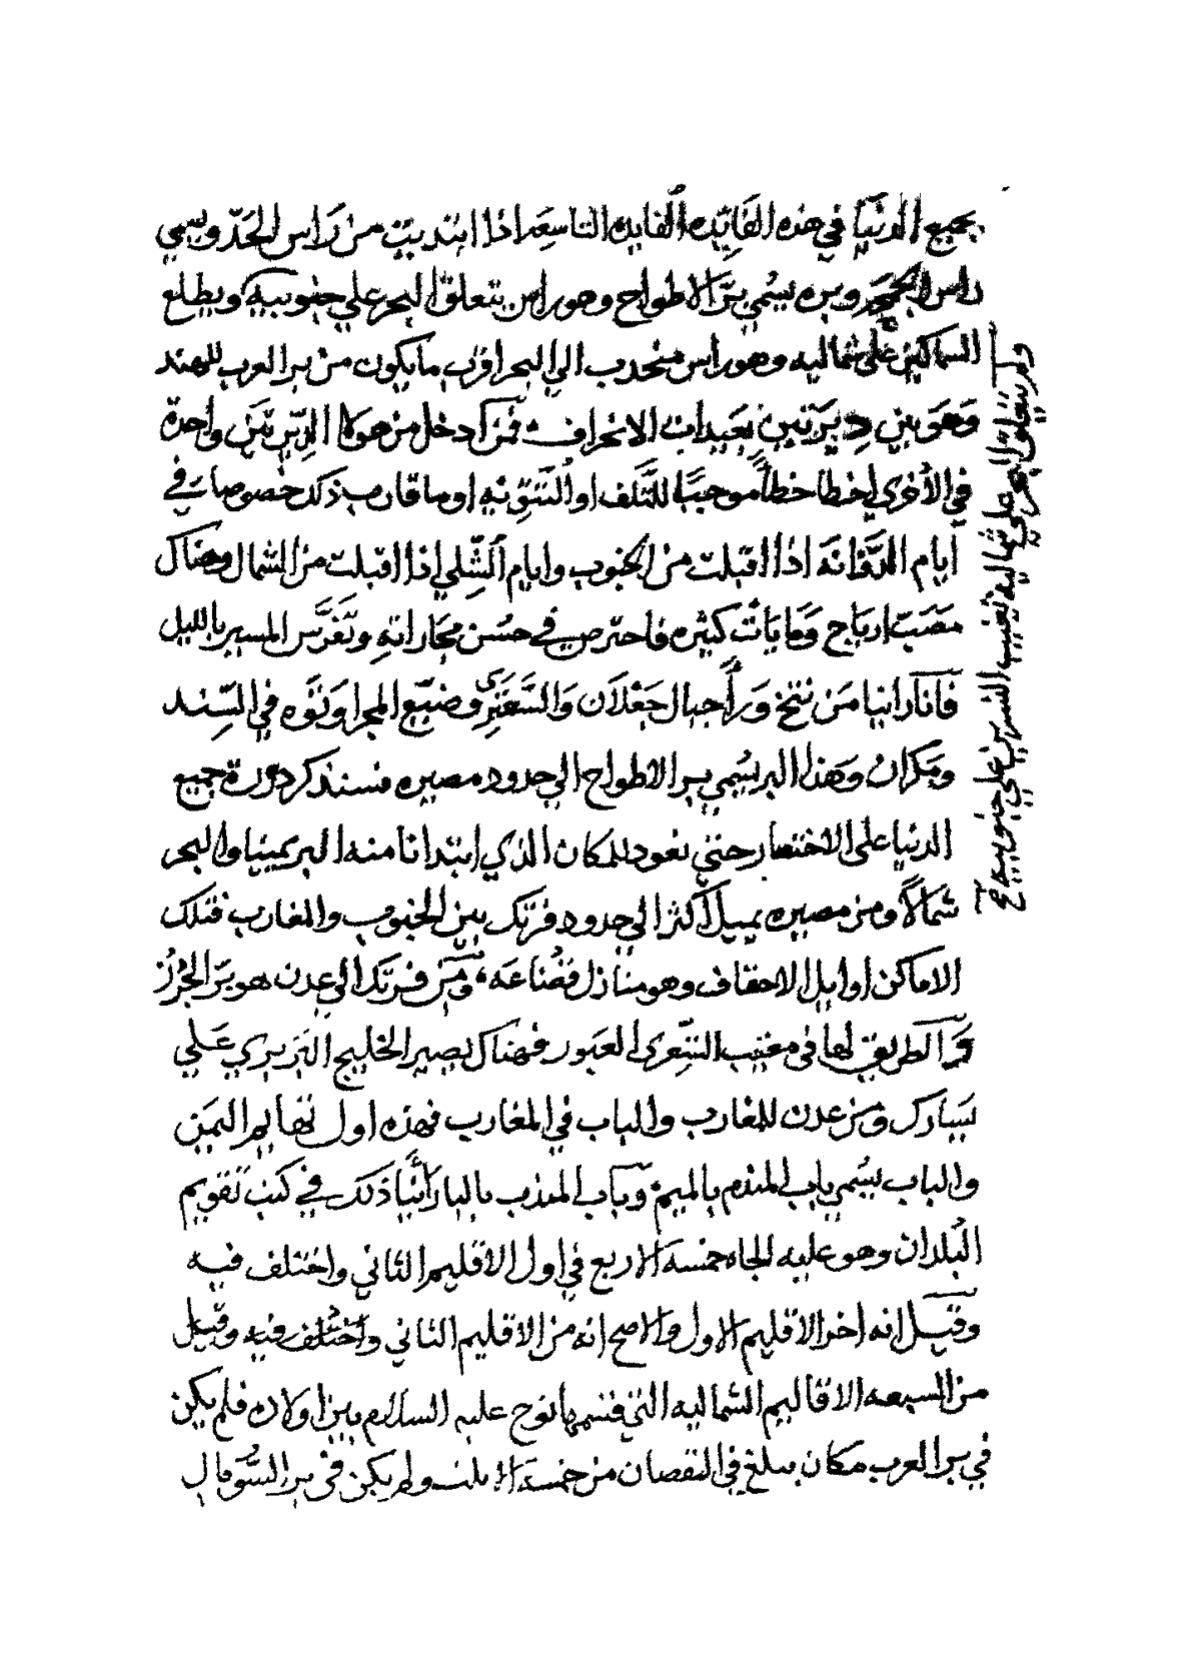 بجميع الدنيا في هذه الفائده الفايده التاسعه اذا ابتديت من راس الحد ويسمي
راس الجمجمه وبره يسمي بر الاطواح وهو راس يتعلق البحر علي جنوبيه ويطلع
السماكين علي شماليه وهو راس منحدب الي البحر اقرب ما يكون من بر العرب للهند
وهو بين ديرتين بعيدات الانحراف فمن دخل من هولا الديرتين واحدة
في الاخري اخطا خطأ موجبًا للتلف او التتويه او ما قارب ذلك خصوصا في
ايام الدمانة اذا اقبلت من الجنوب وايام الشلي اذا اقبلت من الشمال وهناك
مصب ارياح ومايات كثيره فاحترص في حسن مجاراته وتفرس المسير بالليل
فانا راينا من نتخ ورأ جبال جعلان والسعتري وضيع المجرا وتوه في السند
ومكران وهذا البر يسمي بر الاطواح الي حدود مصيره فسنذكر دورة جميع
الدنيا على الاختصار حتي نعود للمكان الذي ابتدانا منه البر يمينا والبحر
شمالا ومن مصيره يميل اكثر الي حدود فرتك بين الجنوب والمغارب فتلك
الاماكن اوايل الاحقاف وهو منازل قضاعه ومن فرتك الي عدن هو بر الجرز
الطريق لها في مغيب الشعرى العبور فهناك يصير الخليج البربري علي
يسارك ومن عدن للمغارب والباب في المغارب فهذه اول تهايم اليمن
والباب يسمي باب المندم بالميم وباب المندب بالبا رأينا ذلك في كتب تقويم
البلدان وهو عليه الجاه خمسة الا ربع في اول الاقليم الثاني واختلف فيه
وقيل انه اخر الاقليم الاول والاصح انه من الاقليم الثاني واختلف فيه وقيل
من السبعه الاقاليم الشماليه التي قسمها نوح عليه السلام بين اولاده فلم يكن
في بر العرب مكان يبلغ في النقصان من خمسة الا ثلث ولم يكن في بر السومال
ولم يتعلق البحر علي شماليه تغيب النسرين علي جنوبيه صح